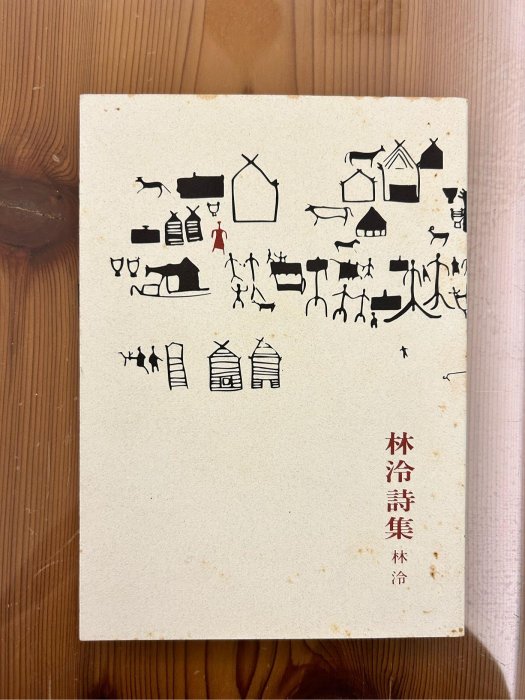 林泠詩集
林泠